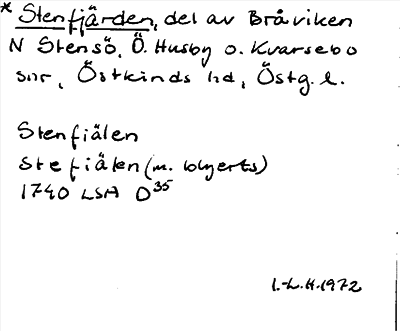 * Stenfjärden, del av Bråviken
N Stensö, Ö. Husby o. Kvarsebo
snr, Östkinds hd, Östg. l.
Stenfiälen
Stefiälen (m. blyerts)
1740 LSA D35
I.-L.H. 1972